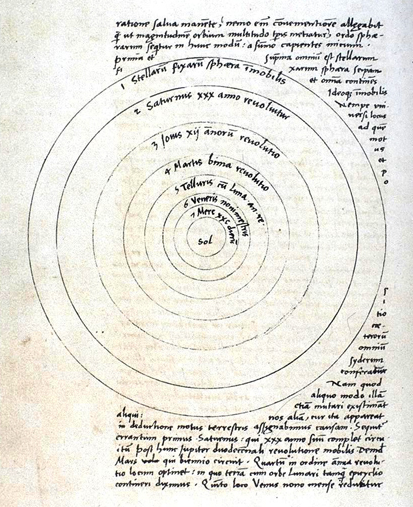 ratione salva manēte, nemo em̄ cōvenientiorē allegabit
q̃ ut magnitudinē orbium multitudo tp̄is metiatur, ordo sphæ-
rarum seqtur in hunc modū: a sūmo capientes inicium.
prima et suprema omniū est stellarum
fi xarum sphæra seipsam
et omnia continēs
Ideoq̃ īmobilis
Nempe uni
versi locus
ad quē
mot
us
et
p
o
1 Stellarū fixarū sphæra imobilis
2 Saturnus xxx anno revolvitur
3 Jovis xij añorū revolutio
4 Martis bima revolutio
5 Telluris cū Luna an. re.
6 Veneris nonimestris
7 Merc xxc dierū
Sol
tio
cæ-
terorū
omniū
syderum
conferatur
Nam quod
aliquo modo illā
etiā mutari existimāt
aliqui: nos aliā, cur ita appareat
in deductione motus terrestris assignabimus causam. Sequit
errantium primus Saturnus: qui xxx anno suū complet circu
itū post hunc Jupiter duodecenali revolutione mobilis. Deinde
Mars qui biennio circuit. Quartū in ordine annua revolu-
tio locum optinet: in quo terrā cum orbe Lunari tanq̃ epicyclo
contineri diximus. Quinto loco Venus nono mense reducitur